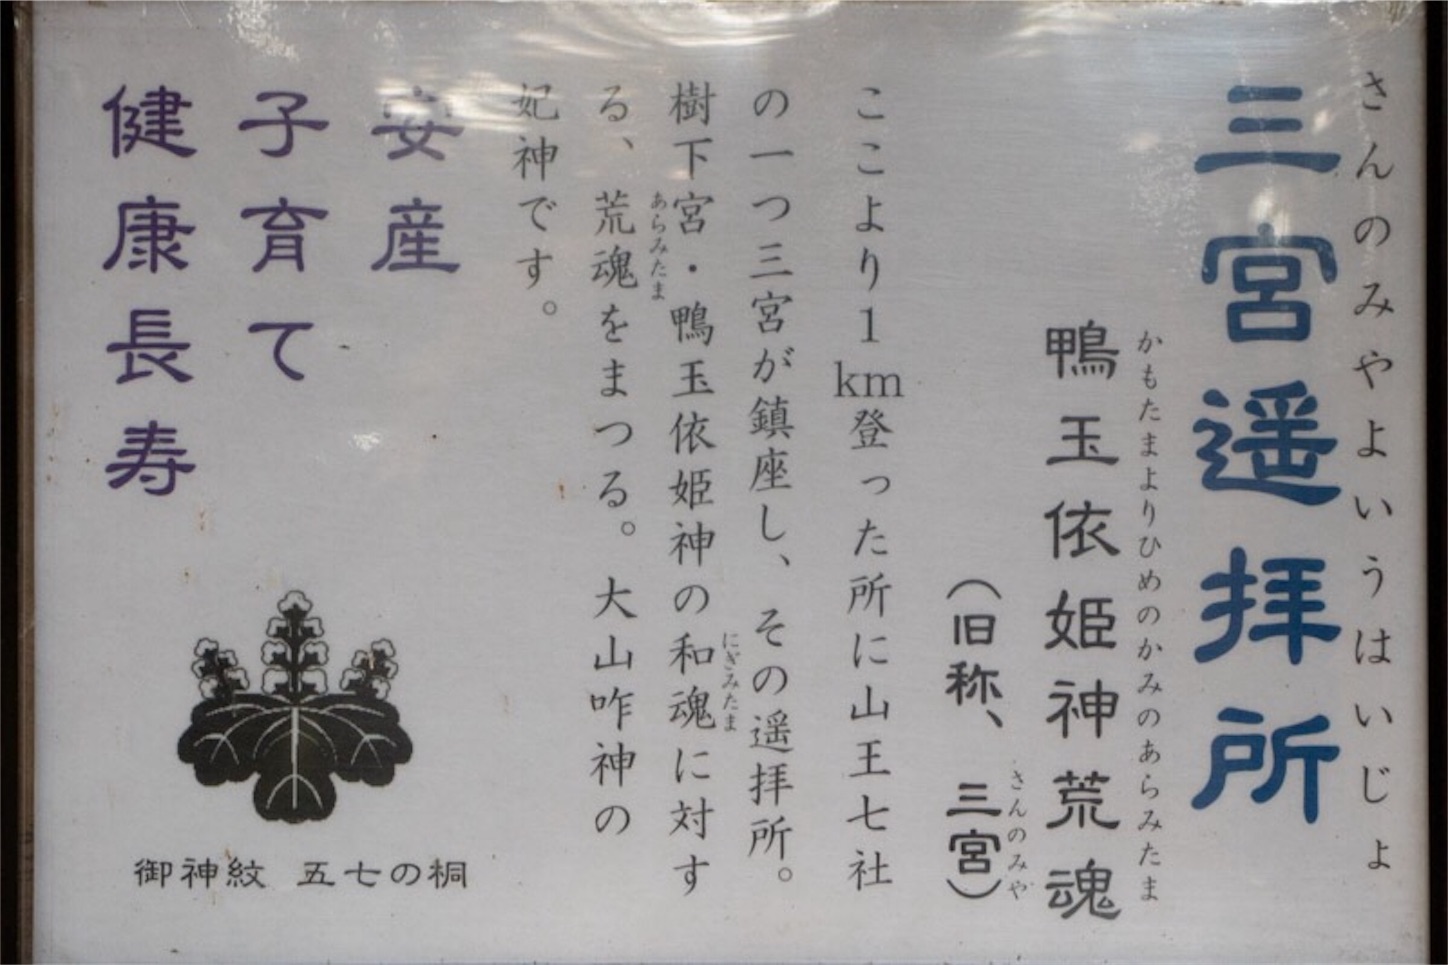 さんのみやよいうはいじょ
三宮遥拝所
かもたまよりひめのかみのあらみたま
鴨玉依姫神荒魂
さんのみや
(旧称、三宮)
ここより1km登った所に山王七社
の一つ三宮が鎮座し、その遥拝所。
にぎみたま
樹下宮・鴨玉依姫神の和魂に対す
あらみたま
る、荒魂をまつる。大山咋神の
妃神です。
安産
子育て
健康長寿
御神紋 五七の桐